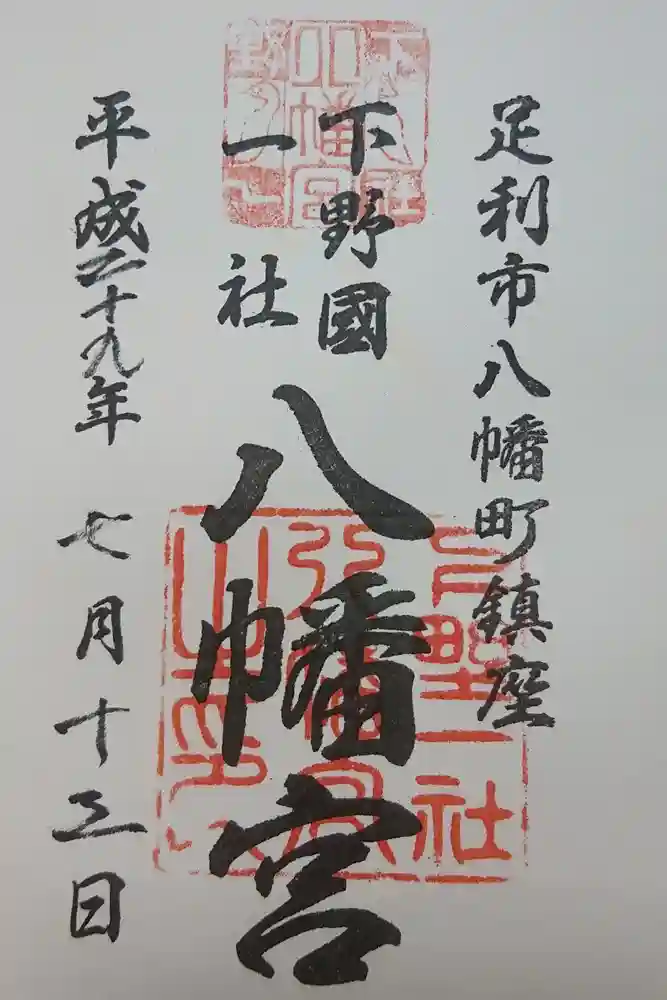 足利市八幡町鎮座
下野國
一社
八幡宮
平成二十九年 七月十三日